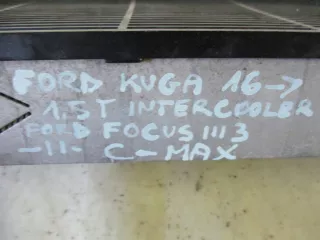 FORD KUGA 16->
1.5T INTERCOOLER
FORD FOCUS III 3
-11- C-MAX